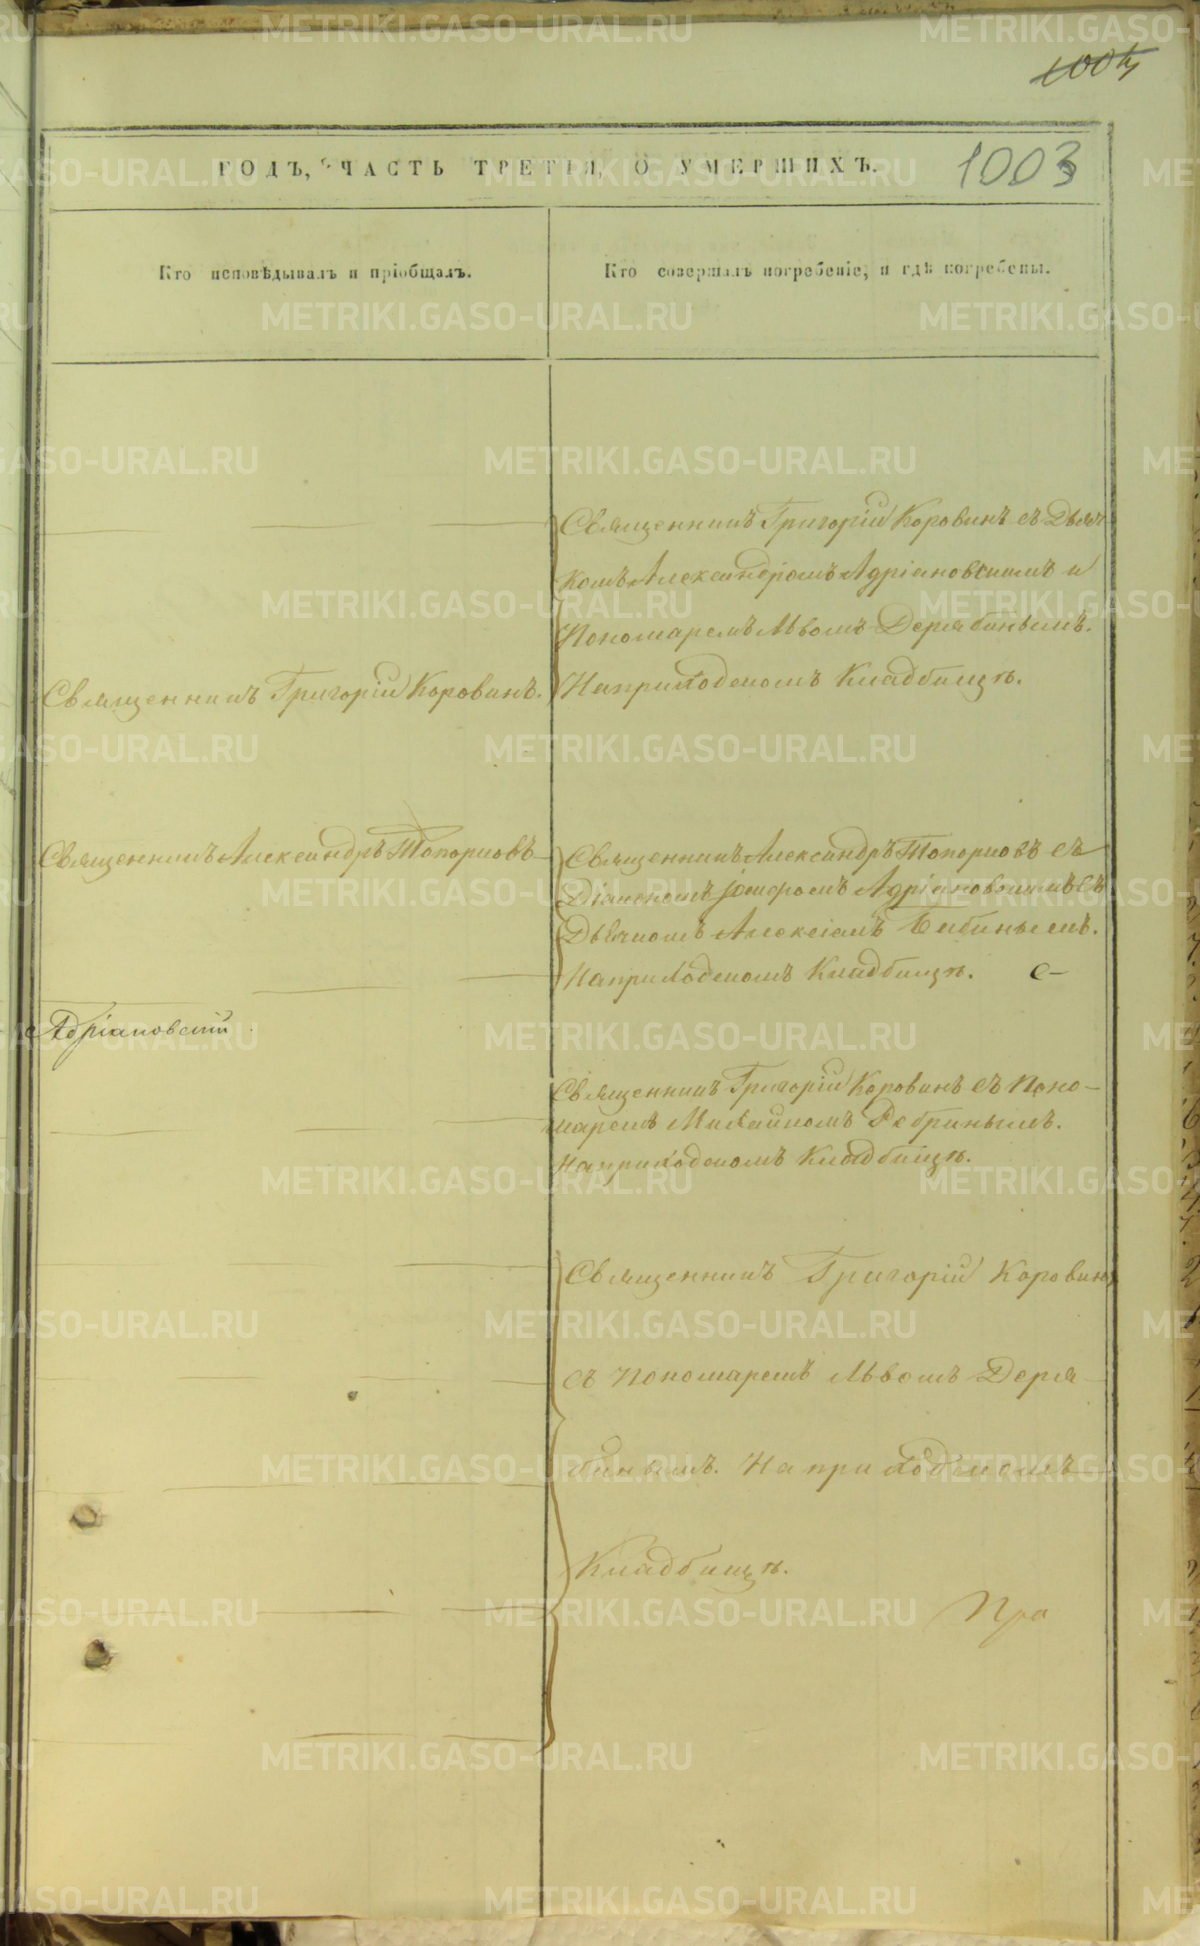 1004
ГОДЪ, ЧАСТЬ ТРЕТЬЯ, О УМЕРШИХЪ. 1003
Кто исповѣдывалъ и пріобщалъ.
Кто совершалъ погребеніе, и гдѣ погребены.
Священникъ Григорій Коровинъ съ Дьяч
комъ Александромъ Адріановскимъ и
Пономаремъ Львомъ Дерябинымъ.
Священникъ Григорій Коровинъ.
На приходскомъ Кладбищѣ.
Священникъ Александръ Топорковъ
Священникъ Александръ Топорковъ съ
Діакономъ Адріановскимъ съ
Дьячкомъ Алексіемъ Бибинымъ.
На приходскомъ Кладбищѣ. с-
Адріановскій
Священникъ Григорій Коровинъ съ Поно-
маремъ Михаиломъ Ребринымъ.
На приходскомъ Кладбищѣ.
Священникъ Григорій Коровинъ
съ Пономаремъ Львомъ Деря
бинымъ. На приходскомъ
Кладбищѣ.
Пра
METRIKI.GASO-URAL.RU